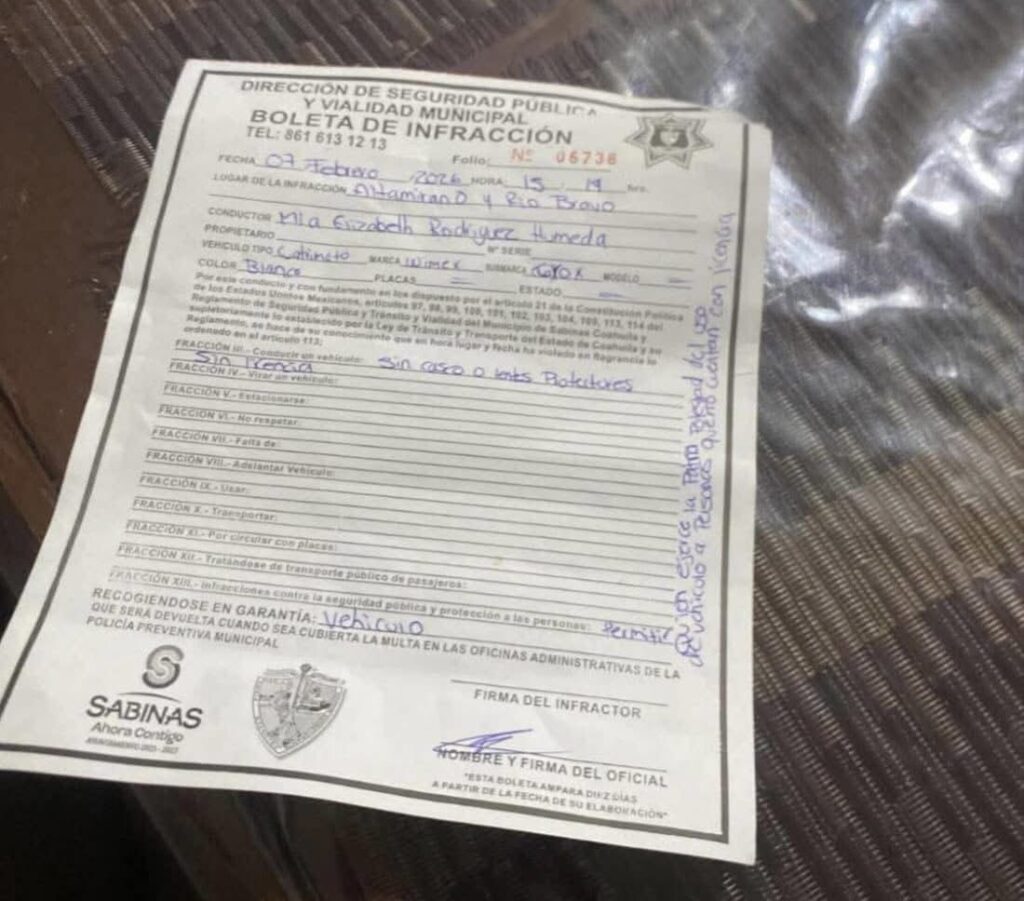 DIRECCIÓN DE SEGURIDAD PÚBLICA
Y VIALIDAD MUNICIPAL
BOLETA DE INFRACCIÓN
TEL: 861 613 12 13
Folio: Nº 06736
FECHA 07 Febrero 2026 HORA 15 . 19 hrs.
LUGAR DE LA INFRACCIÓN Altamirano y Rio Bravo
CONDUCTOR Mia Elizabeth Rodriguez Humeda
PROPIETARIO Nº SERIE
VEHICULO TIPO MARCA SUBMARCA MODELO —
COLOR Blanco PLACAS = ESTADO —
Por este conducto y con fundamento en los dispuesto por el artículo 21 de la Constitución Política
de los Estados Unidos Mexicanos, artículos 97, 98, 99, 100, 101, 102, 103, 104, 109, 113, 114 del
Reglamento de Seguridad Pública y Tránsito y Vialidad del Municipio de Sabinas Coahuila y
supletoriamente lo establecido por la Ley de Tránsito y Transporte del Estado de Coahuila y su
Reglamento, se hace de su conocimiento que en hora lugar y fecha ha violado en flagrancia lo
ordenado en el artículo 113;
FRACCIÓN III.- Conducir un vehículo: Sin casco o lentes Protectores
Sin licencia
FRACCIÓN IV.- Virar un vehículo:
FRACCIÓN V.- Estacionarse:
FRACCIÓN VI.- No respetar:
FRACCIÓN VII.- Falta de:
FRACCIÓN VIII.- Adelantar Vehículo:
FRACCIÓN IX.- Usar:
FRACCIÓN X.- Transportar:
FRACCIÓN XI.- Por circular con placas:
FRACCIÓN XII.- Tratándose de transporte público de pasajeros:
FRACCIÓN XIII.- Infracciones contra la seguridad pública y protección a las personas: Permitir
quien ejerce la Patria Potestad del uso
de vehiculo a Personas que no cuentan con licencia
RECOGIENDOSE EN GARANTÍA: Vehiculo
QUE SERÁ DEVUELTA CUANDO SEA CUBIERTA LA MULTA EN LAS OFICINAS ADMINISTRATIVAS DE LA
POLICÍA PREVENTIVA MUNICIPAL
SABINAS
Ahora Contigo
FIRMA DEL INFRACTOR
NOMBRE Y FIRMA DEL OFICIAL
"ESTA BOLETA AMPARA DIEZ DÍAS
A PARTIR DE LA FECHA DE SU ELABORACIÓN"